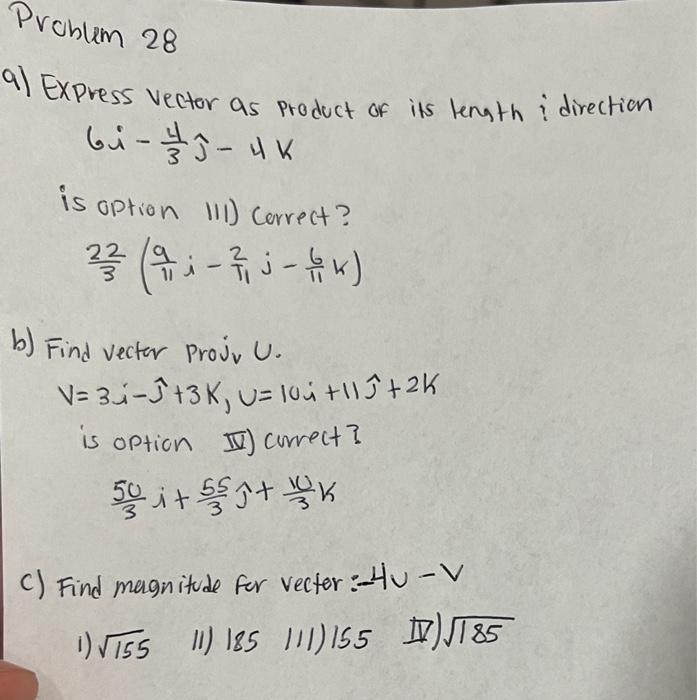 Problem 28
a) Express vector as product of its length & direction
6i - 4/3 ĵ - 4K
is option III) correct?
22/3 (9/11 i - 2/11 j - 6/11 K)
b) Find vector Projv U.
V = 3i - ĵ + 3K, U = 10i + 11ĵ + 2K
is option IV) correct?
50/3 i + 55/3 ĵ + 10/3 K
c) Find magnitude for vector: -4U - V
I) √155 II) 185 III) 155 IV) √185